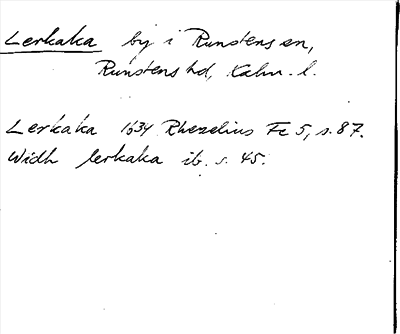 Lerkaka by i Runstens sn,
Runstens hd, Kalm. l.
Lerkaka 1634 Rhezelius Fc 5, s. 87.
Widh lerkaka ib. s. 45.